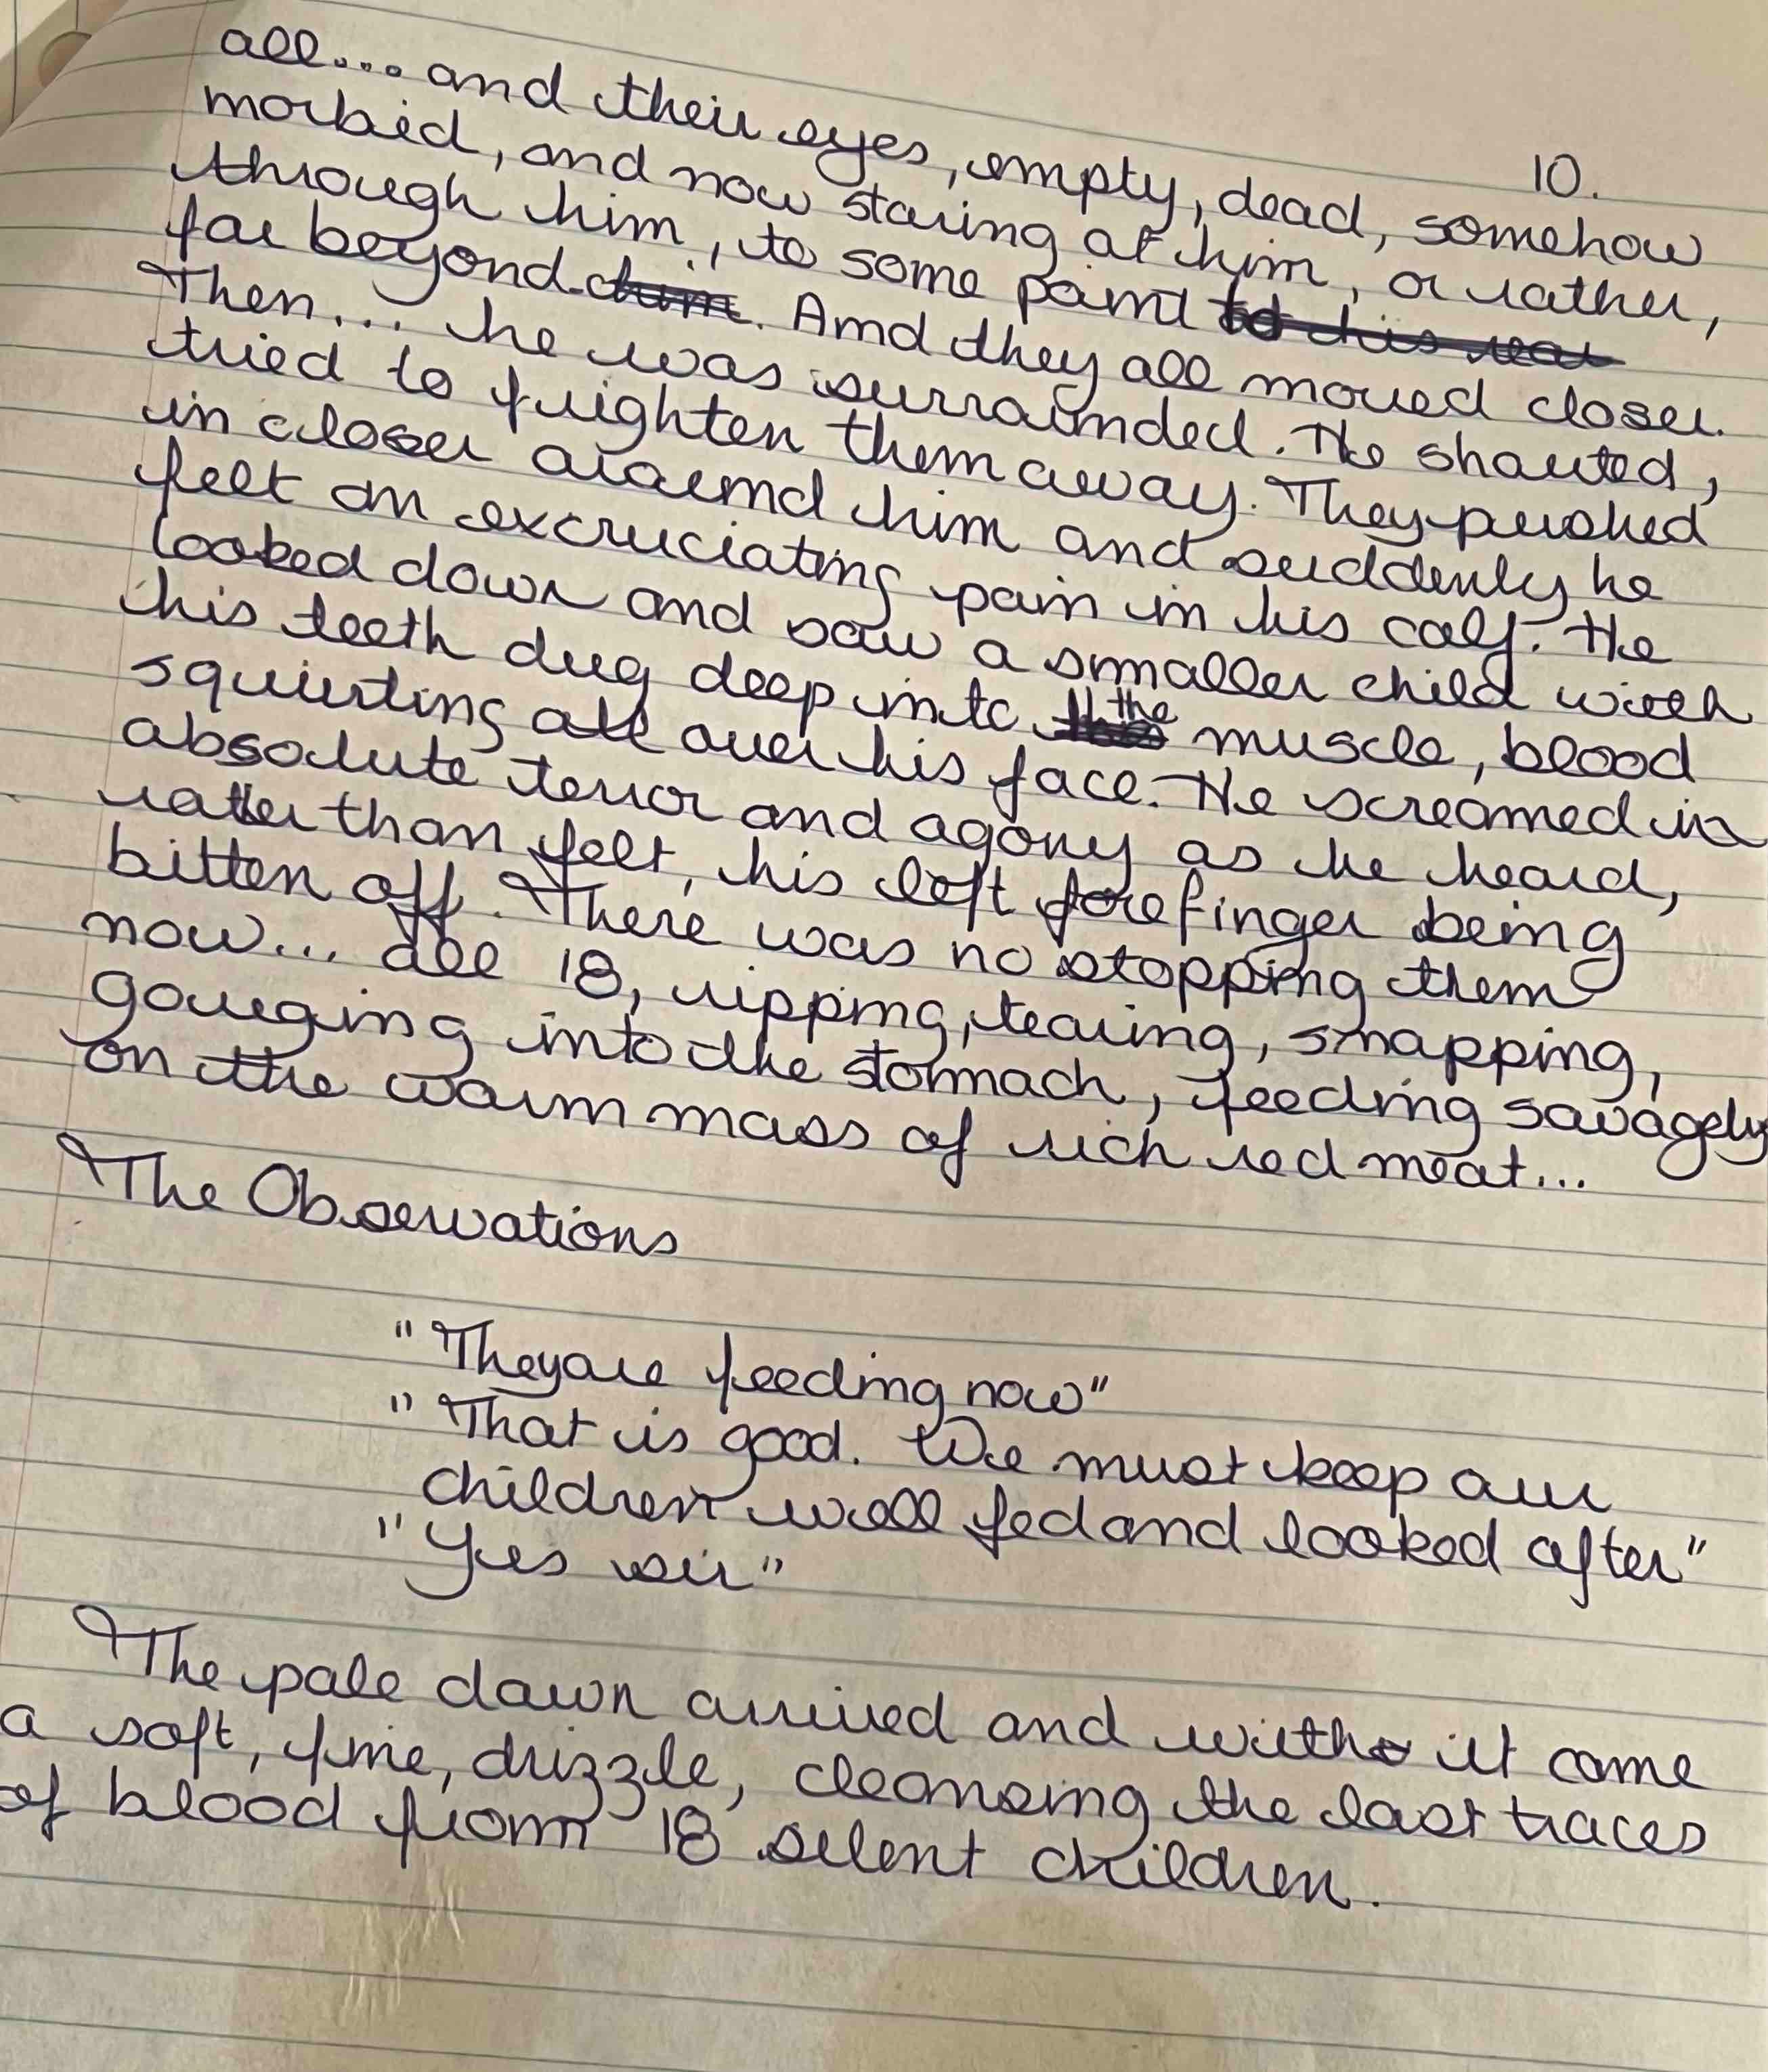 10.
all... and their eyes, empty, dead, somehow
morbid, and now staring at him, or rather,
through him, to some point to his rear
far beyond him. And they all moved closer.
Then... he was surrounded. He shouted,
tried to frighten them away. They pushed
in closer around him and suddenly he
felt an excruciating pain in his calf. He
looked down and saw a smaller child with
his teeth dug deep into the muscle, blood
squirting all over his face. He screamed in
absolute terror and agony as he heard,
rather than felt, his left forefinger being
bitten off. There was no stopping them
now... all 18, ripping, tearing, snapping,
gouging into the stomach, feeding savagely
on the warm mass of rich red meat...
The Observations
"They are feeding now"
"That is good. We must keep our
children well fed and looked after"
"Yes sir"
The pale dawn arrived and with it came
a soft, fine, drizzle, cleansing the last traces
of blood from 18 silent children.